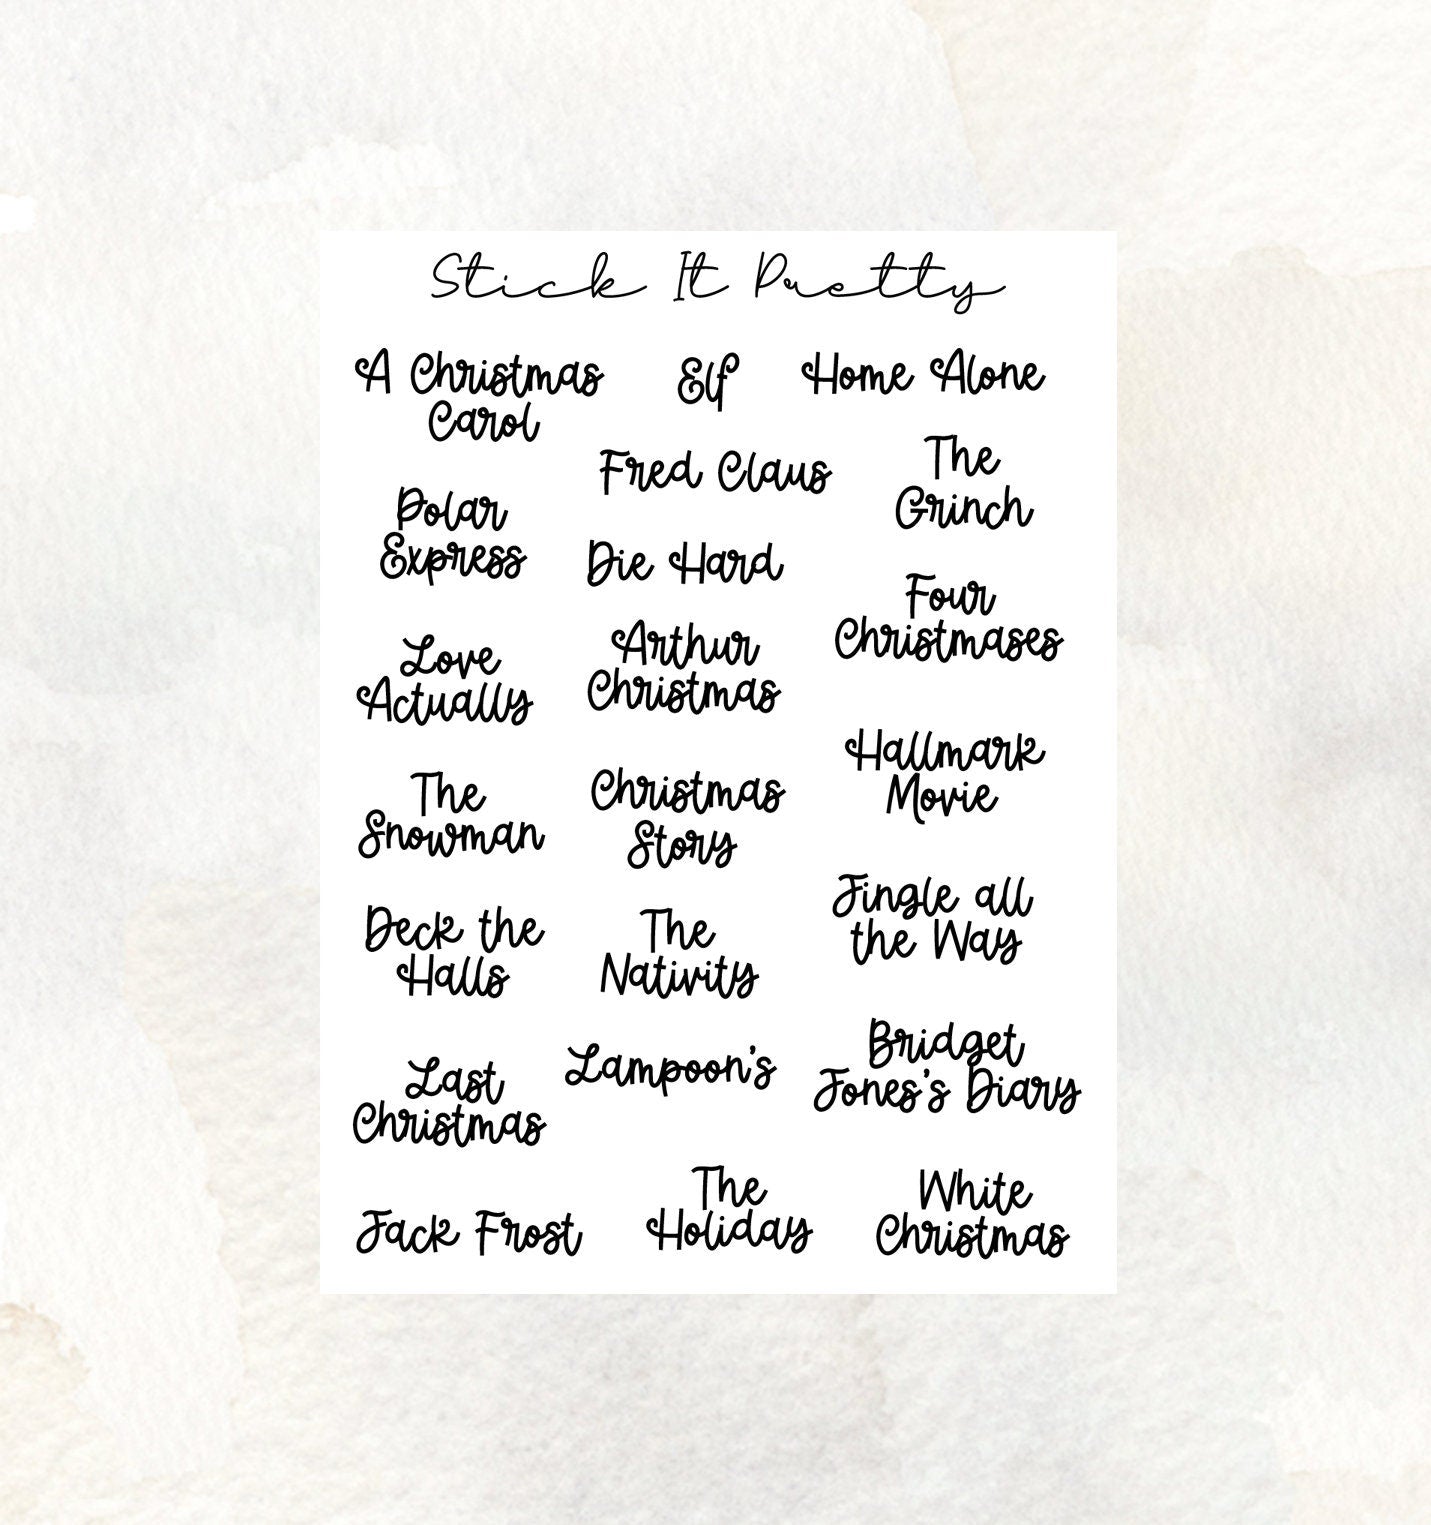 Stick It Pretty
A Christmas
Carol
Elf
Home Alone
Fred Claus
The
Grinch
Polar
Express
Die Hard
Four
Christmases
Love
Actually
Arthur
Christmas
Hallmark
Movie
The
Snowman
Christmas
Story
Jingle all
the Way
Deck the
Halls
The
Nativity
Bridget
Jones's Diary
Last
Christmas
Lampoon's
Jack Frost
The
Holiday
White
Christmas